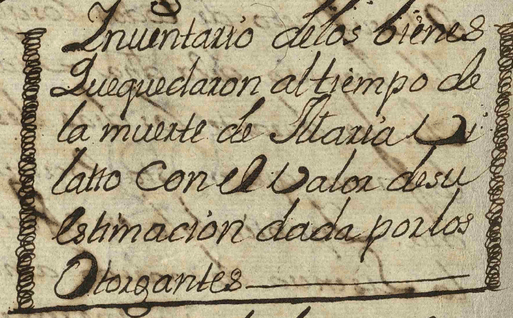 Inventario delos bienes
Quequedaron al tiempo de
la muerte de Maria Vi
latto Con el Valor desu
estimacion dada porlos
Otorgantes